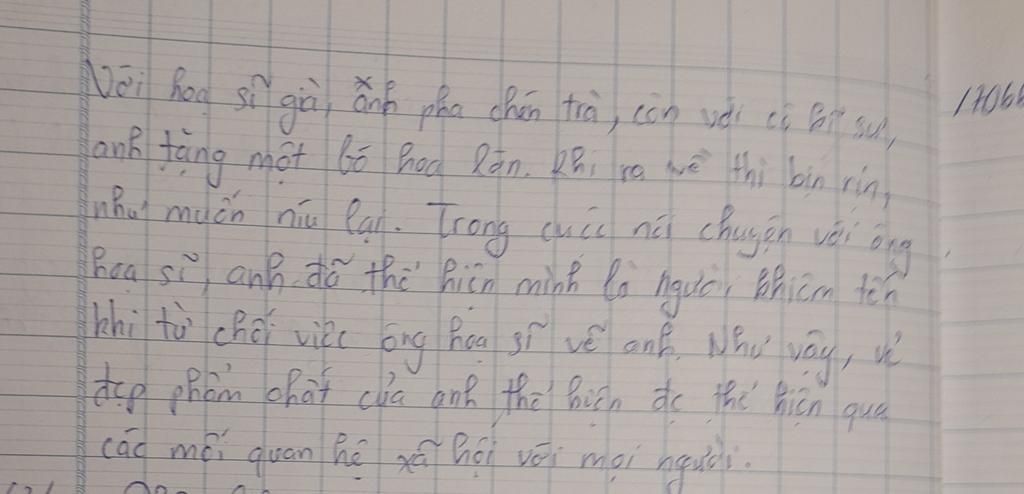 Với hoạ sĩ già, anh pha chén trà, còn với cô kĩ sư,
anh tặng một bó hoa lớn. Khi ra về thì bịn rịn,
như muốn níu lại. Trong cuộc nói chuyện với ông
hoạ sĩ, anh đã thể hiện mình là người khiêm tốn
khi từ chối việc ông hoạ sĩ vẽ anh. Như vậy, vẻ
đẹp phẩm chất của anh thể hiện đc thể hiện qua
các mối quan hệ xã hội với mọi người.